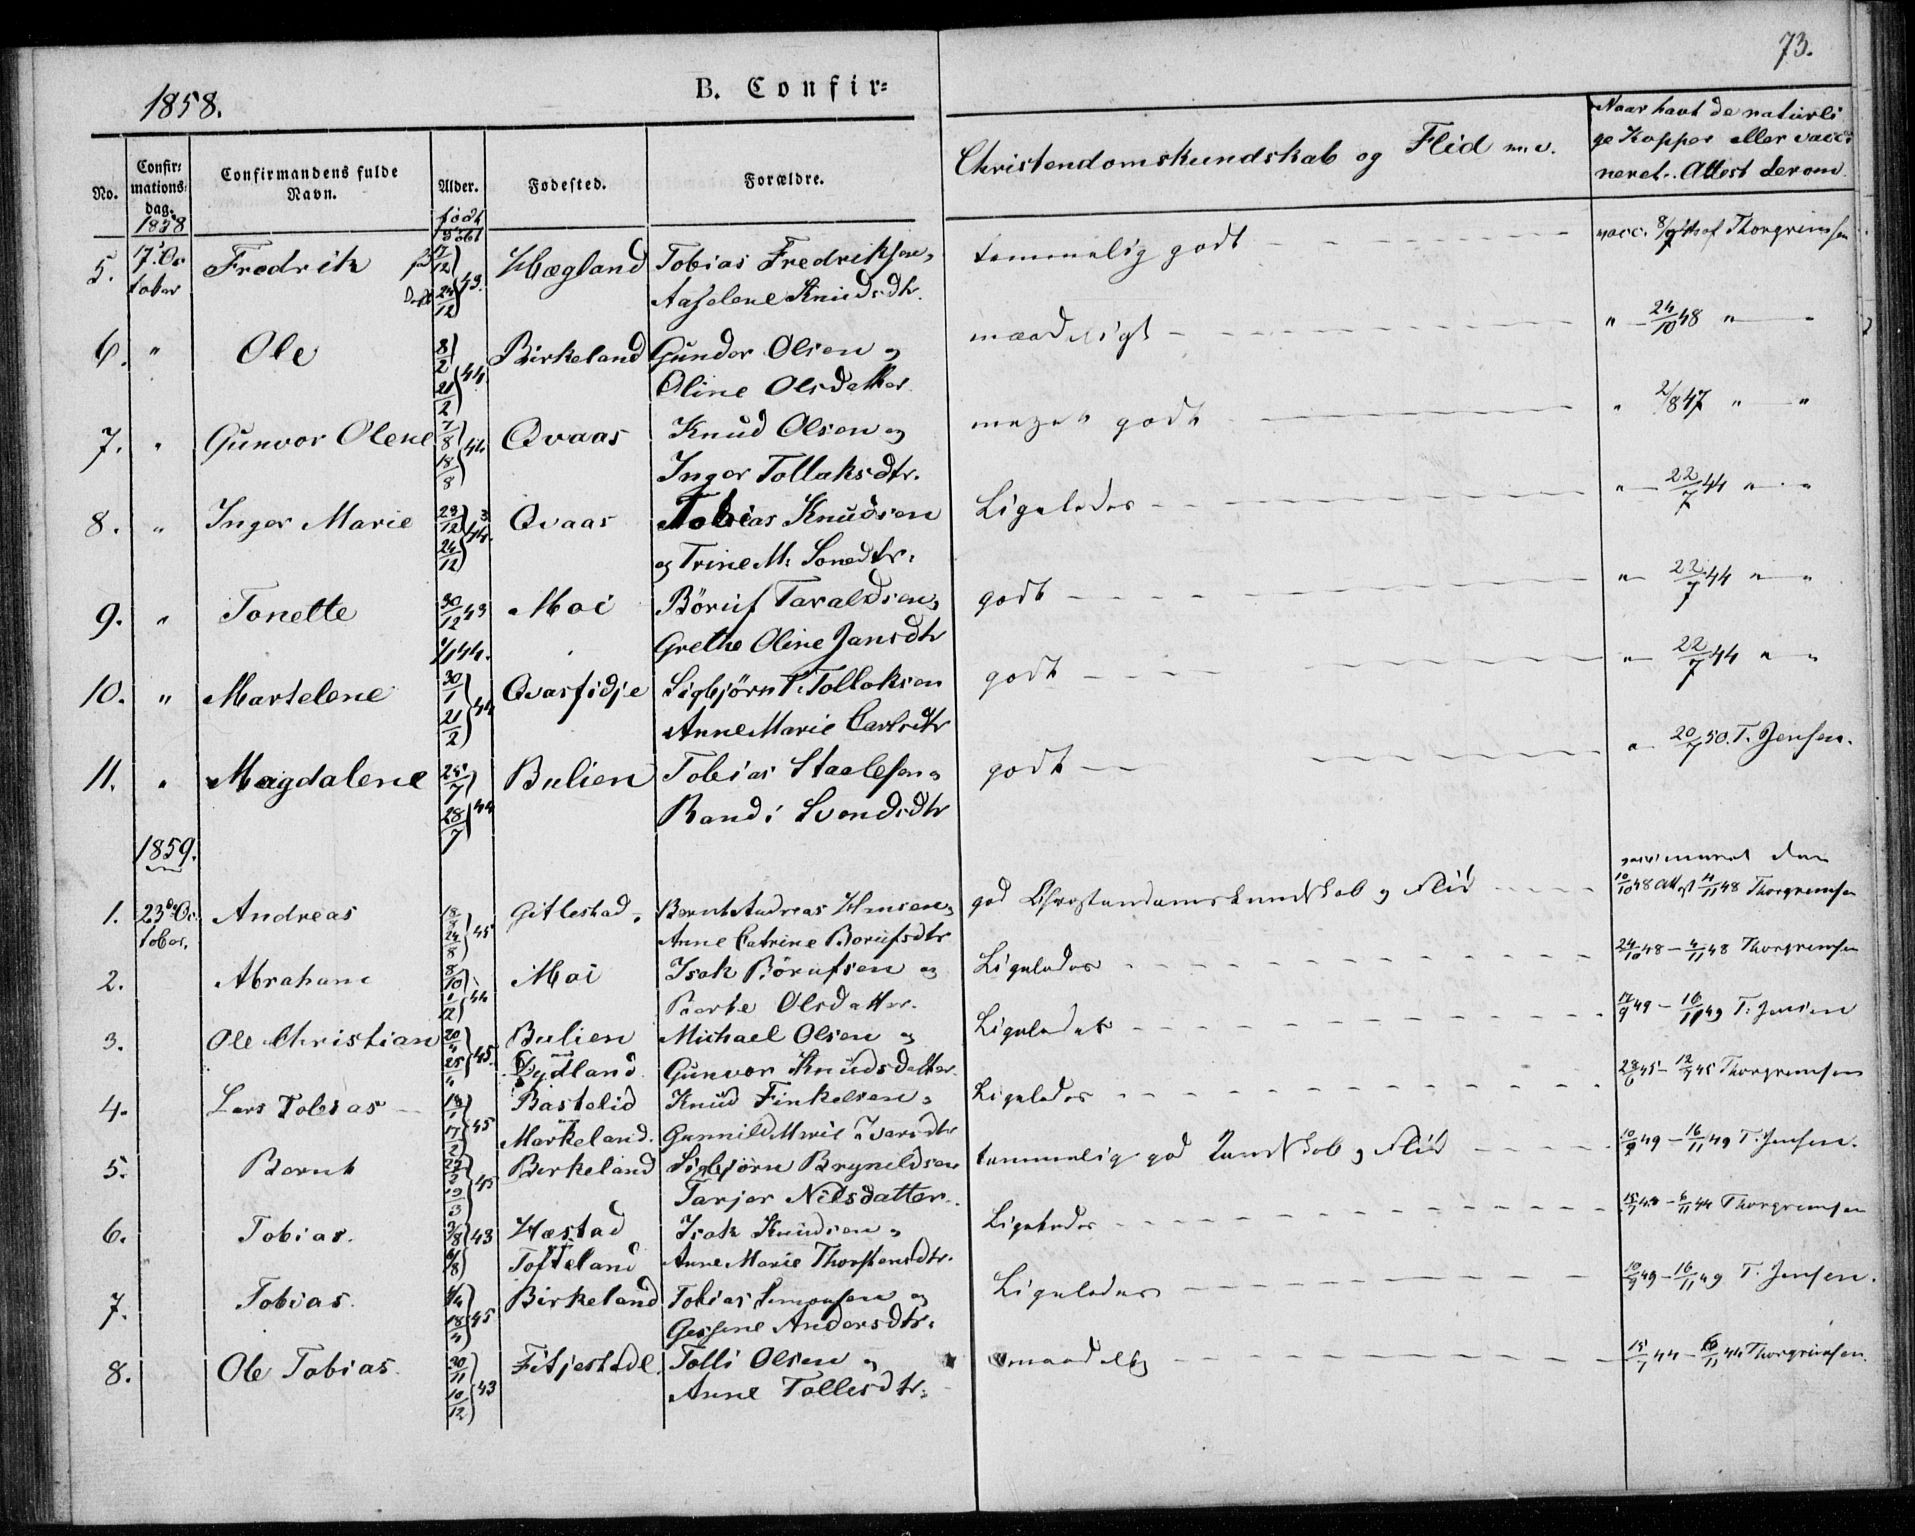 73.
1858.
B. Confir=
No.
Confir=
mations=
dag.
Confirmandens fulde
Navn.
Alder.
Fødested.
Forældre.
Christendomskundskab og Flid m.v.
Naar havt de naturli
ge Kopper eller vacci
neret. Attest derom
1858
født
døbt
5. 17. Oc Fredrik 17/12 Hægland Tobias Fredriksen, temmelig godt vacc. Thorgrimsen
tober 24/12 43. Aaselene Knudsdtr.
6. " Ole 8/2 44. Birkeland Gunder Olsen og maadeligt " 24/10 48 " "
21/2 Oline Olsdatter
7. " Gunvor Olene 7/8 44 Qvaas Knud Olsen og meget godt " 2/8 47 " "
18/8 Inger Tollaksdtr.
8. " Inger Marie 23/12 Qvaas Tobias Knudsen Ligeledes " 22/7 44 " "
24/12 og Trine M. Sonedtr.
9. " Tonette 30/12 43 Moi Böruf Taraldsen, godt " 22/7 44 " "
1/1 44. Grethe Oline Jansdtr
10. " Martelene 30/1 44 Qvasfidje Sigbjörn T. Tollaksen godt " 22/7 44 " "
21/2 Anne Marie Carlsdtr
11. " Magdalene 25/7 44 Bulien Tobias Staalesen, godt " 20/7 50. T. Jensen.
28/7 Randi Svendsdtr
1859.
1. 23de Oc Andreas 18/8 45 Gitlestad. Bernt Andreas Hansen, god Christendomskundskab og Flid 10/10 48 Att. 4/11 48 Thorgrimsen
tober. 24/8 Anne Catrine Borufsdtr
2. Abraham 8/10 44 Moi Isak Börufsen og Ligeledes 24/10 48 - 4/11 48 Thorgrimsen
Berte Olsdatter.
3. Ole Christian 20/4 45. Bulien Michael Olsen og Ligeledes 17/9 49 - 16/11 49 T. Jensen
25/4 Lydland Gunvor Knudsdatter.
4. Lars Tobias 18/1 45 Bastelid Knud Finkelsen, Ligeledes 28/6 45 - 12/7 45 Thorgrimsen
17/2 Markeland. Gunnild Marie Ivarsdtr
5. Bernt 45 Birkeland Sigbjörn Bryneldsen temmelig god Kundskab og Flid 10/9 49 - 16/11 49 T. Jensen.
Tarjer Nilsdatter.
6. Tobias. 43 Hæstad Isak Knudsen, Ligeledes 15/7 - 6/11 44 Thorgrimsen
Tofteland Anne Marie Thorstensdtr.
7. Tobias. 45 Birkeland Tobias Simonsen og Ligeledes 10/9 49 - 16/11 49 T. Jensen.
18/4 Gessine Andersdtr.
8. Ole Tobias 30/11 43 Fitjestad Tolli Olsen og maadelig 15/7 44 - 6/11 44 Thorgrimsen.
10/12 Anne Tollesdtr.